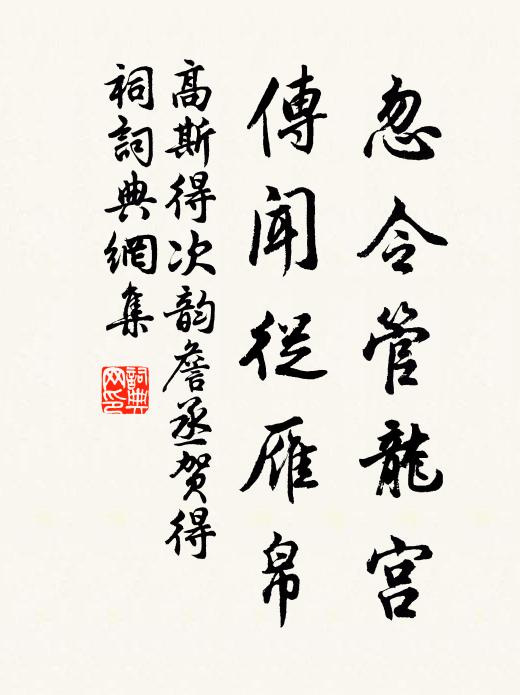 忽令管龍宮
傳聞從雁帛
高斯得次韵詹丞贺得
祠詞典網集
詞典网印